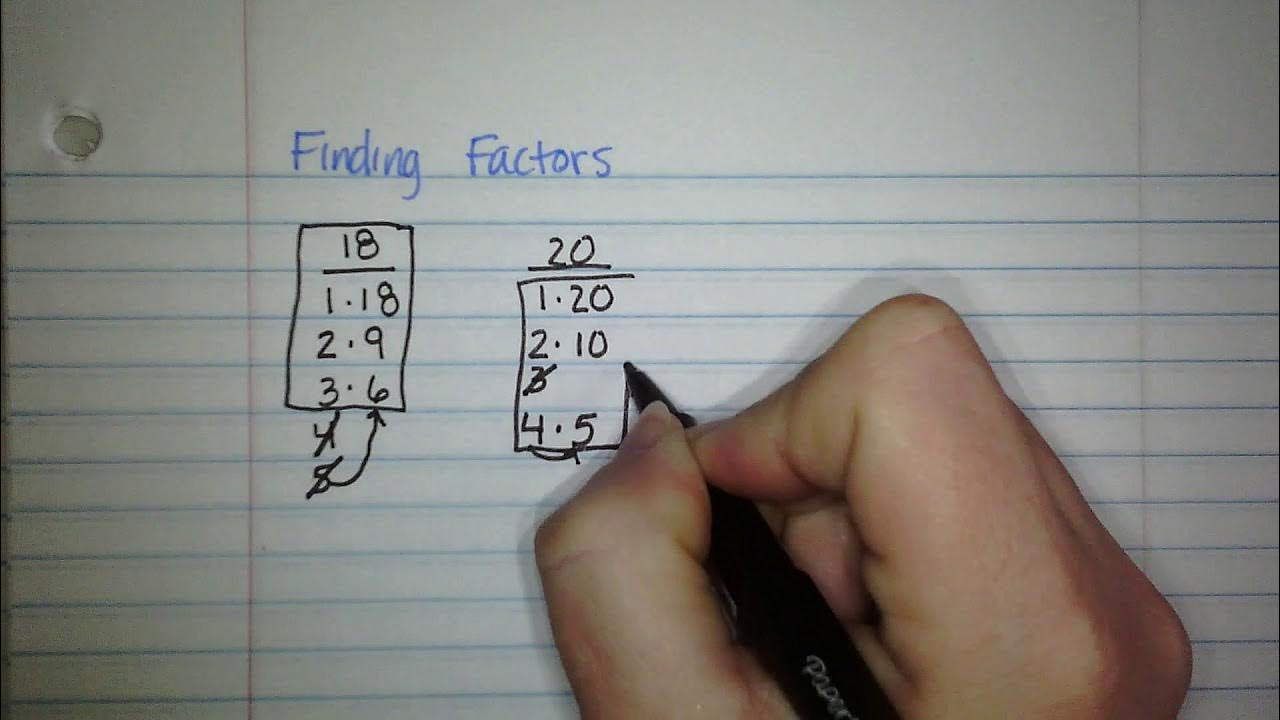 Finding Factors
18
1·18
2·9
3·6
4
5
20
1·20
2·10
3
4·5
Paper